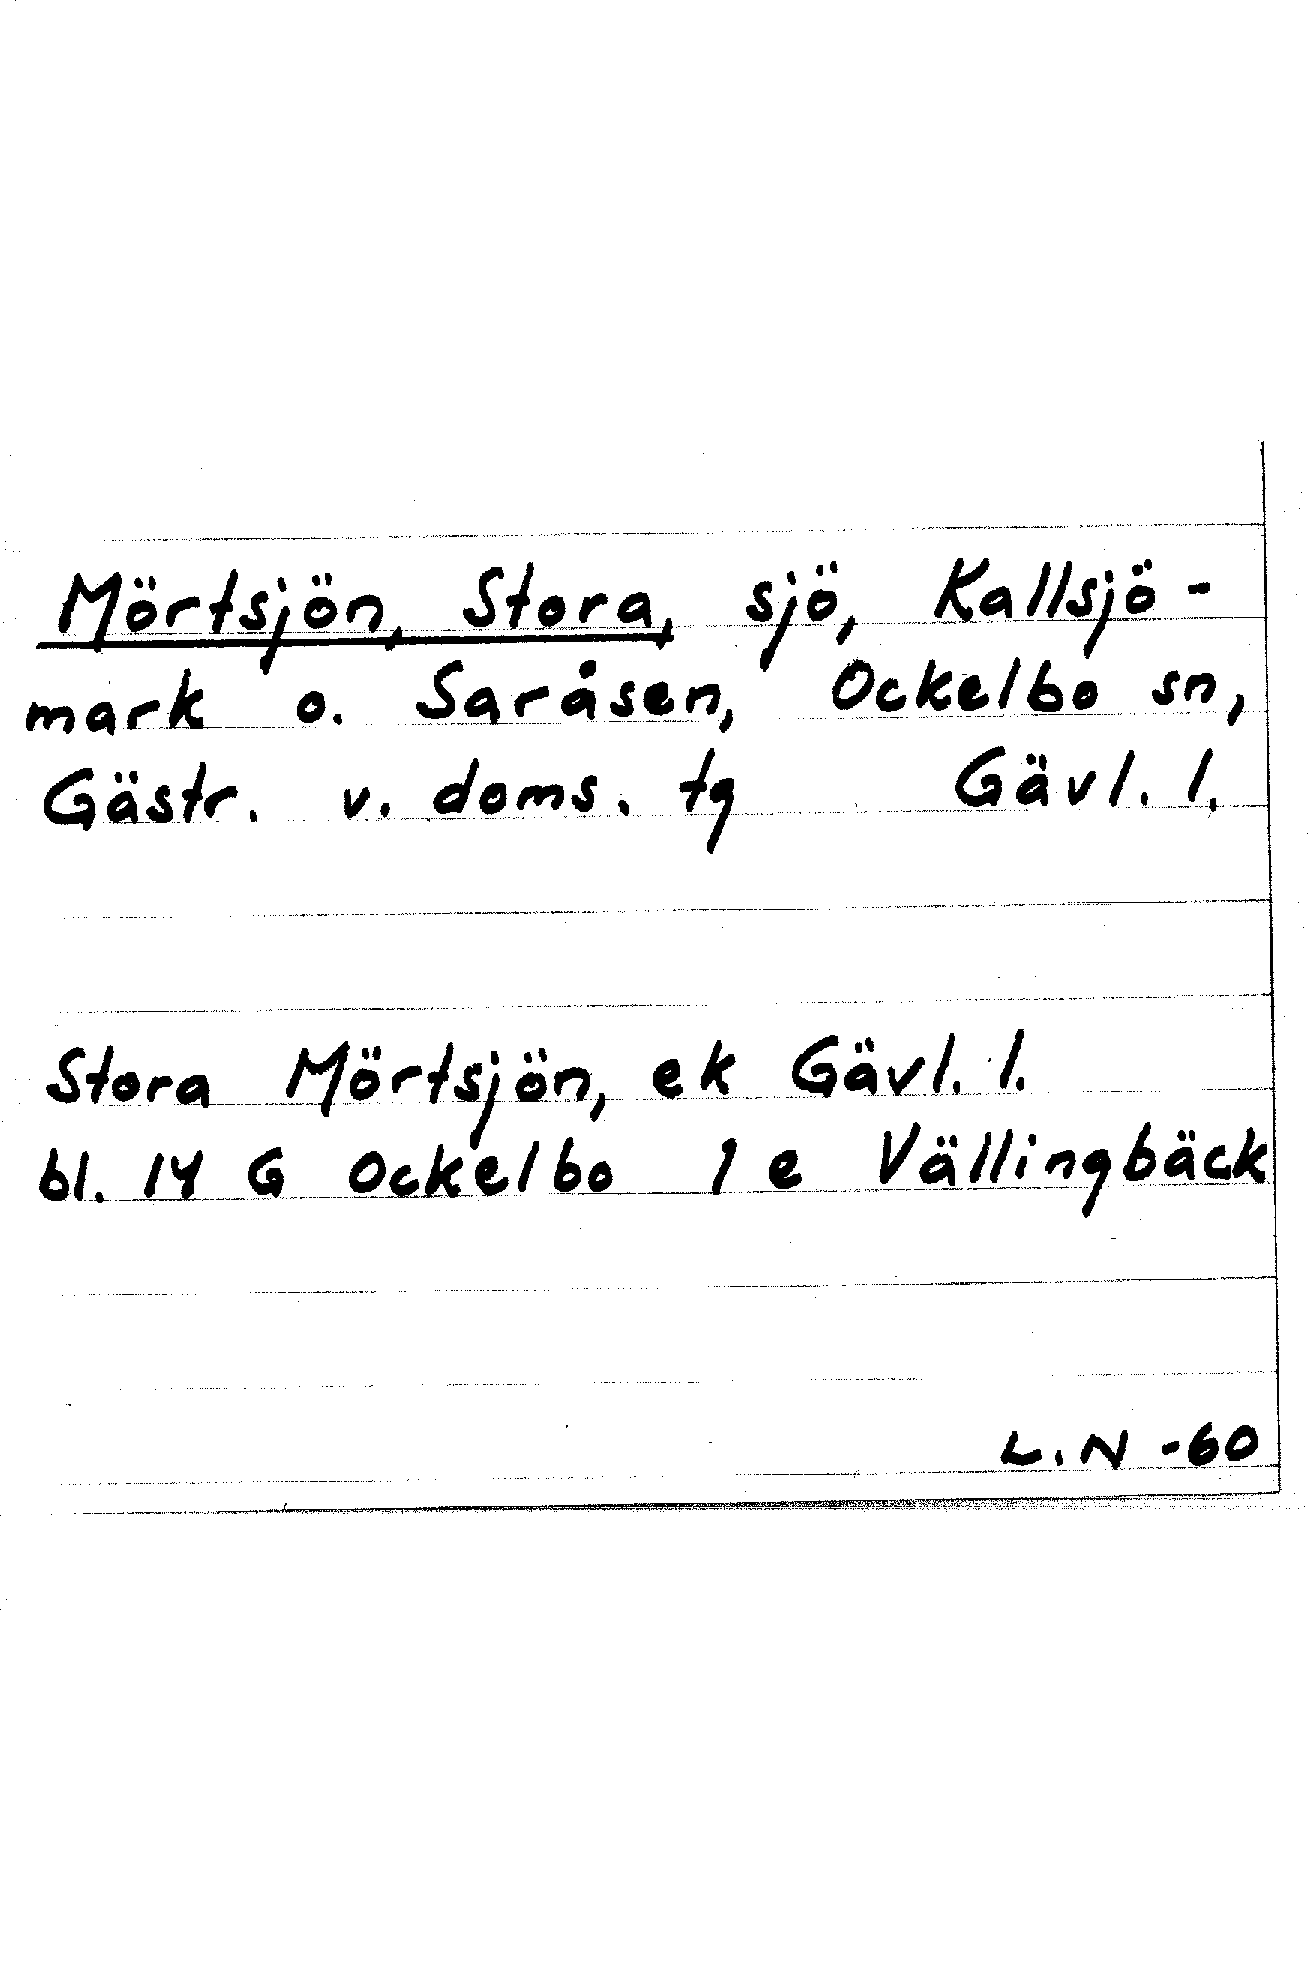 Mörtsjön, Stora, sjö, Kallsjö-
mark o. Saråsen, Ockelbo sn,
Gästr. v. doms. tg Gävl. l.
Stora Mörtsjön, ek Gävl. l.
bl. 14 G Ockelbo 1 e Vällingbäck
L.N -60